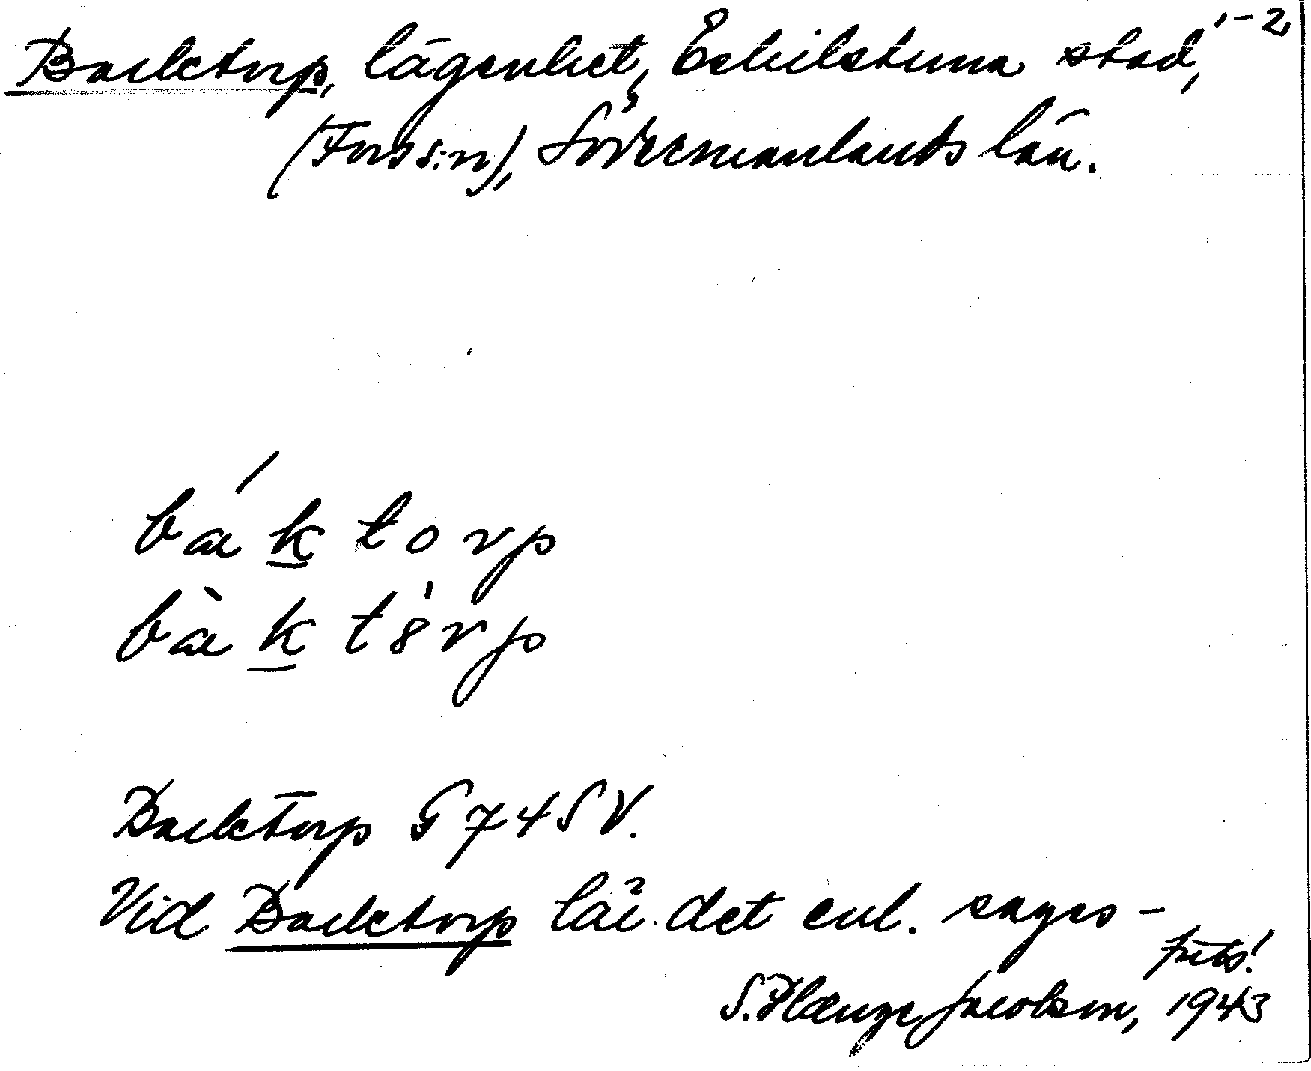 Backtorp, lägenhet, Eskilstuna stad, 1-2
(Fors s:n), Södermanlands län.
bák torp
bàk tòrp
Backtorp G 74 SV.
Vid Backtorp lär det enl. sages-
forts!
S. Plænge Jacobson, 1943